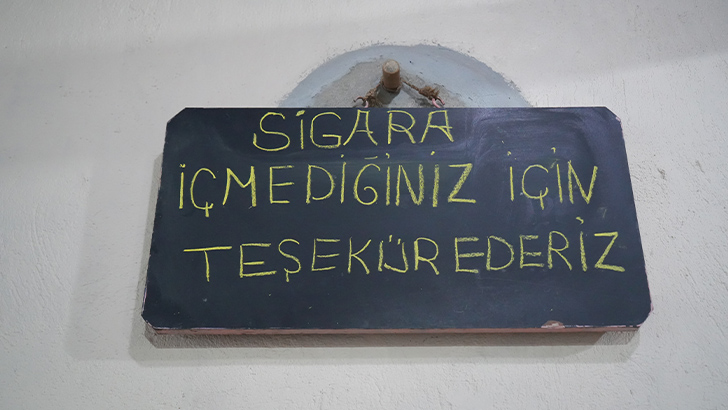 SİGARA
İÇMEDİĞİNİZ İÇİN
TEŞEKÜR EDERİZ